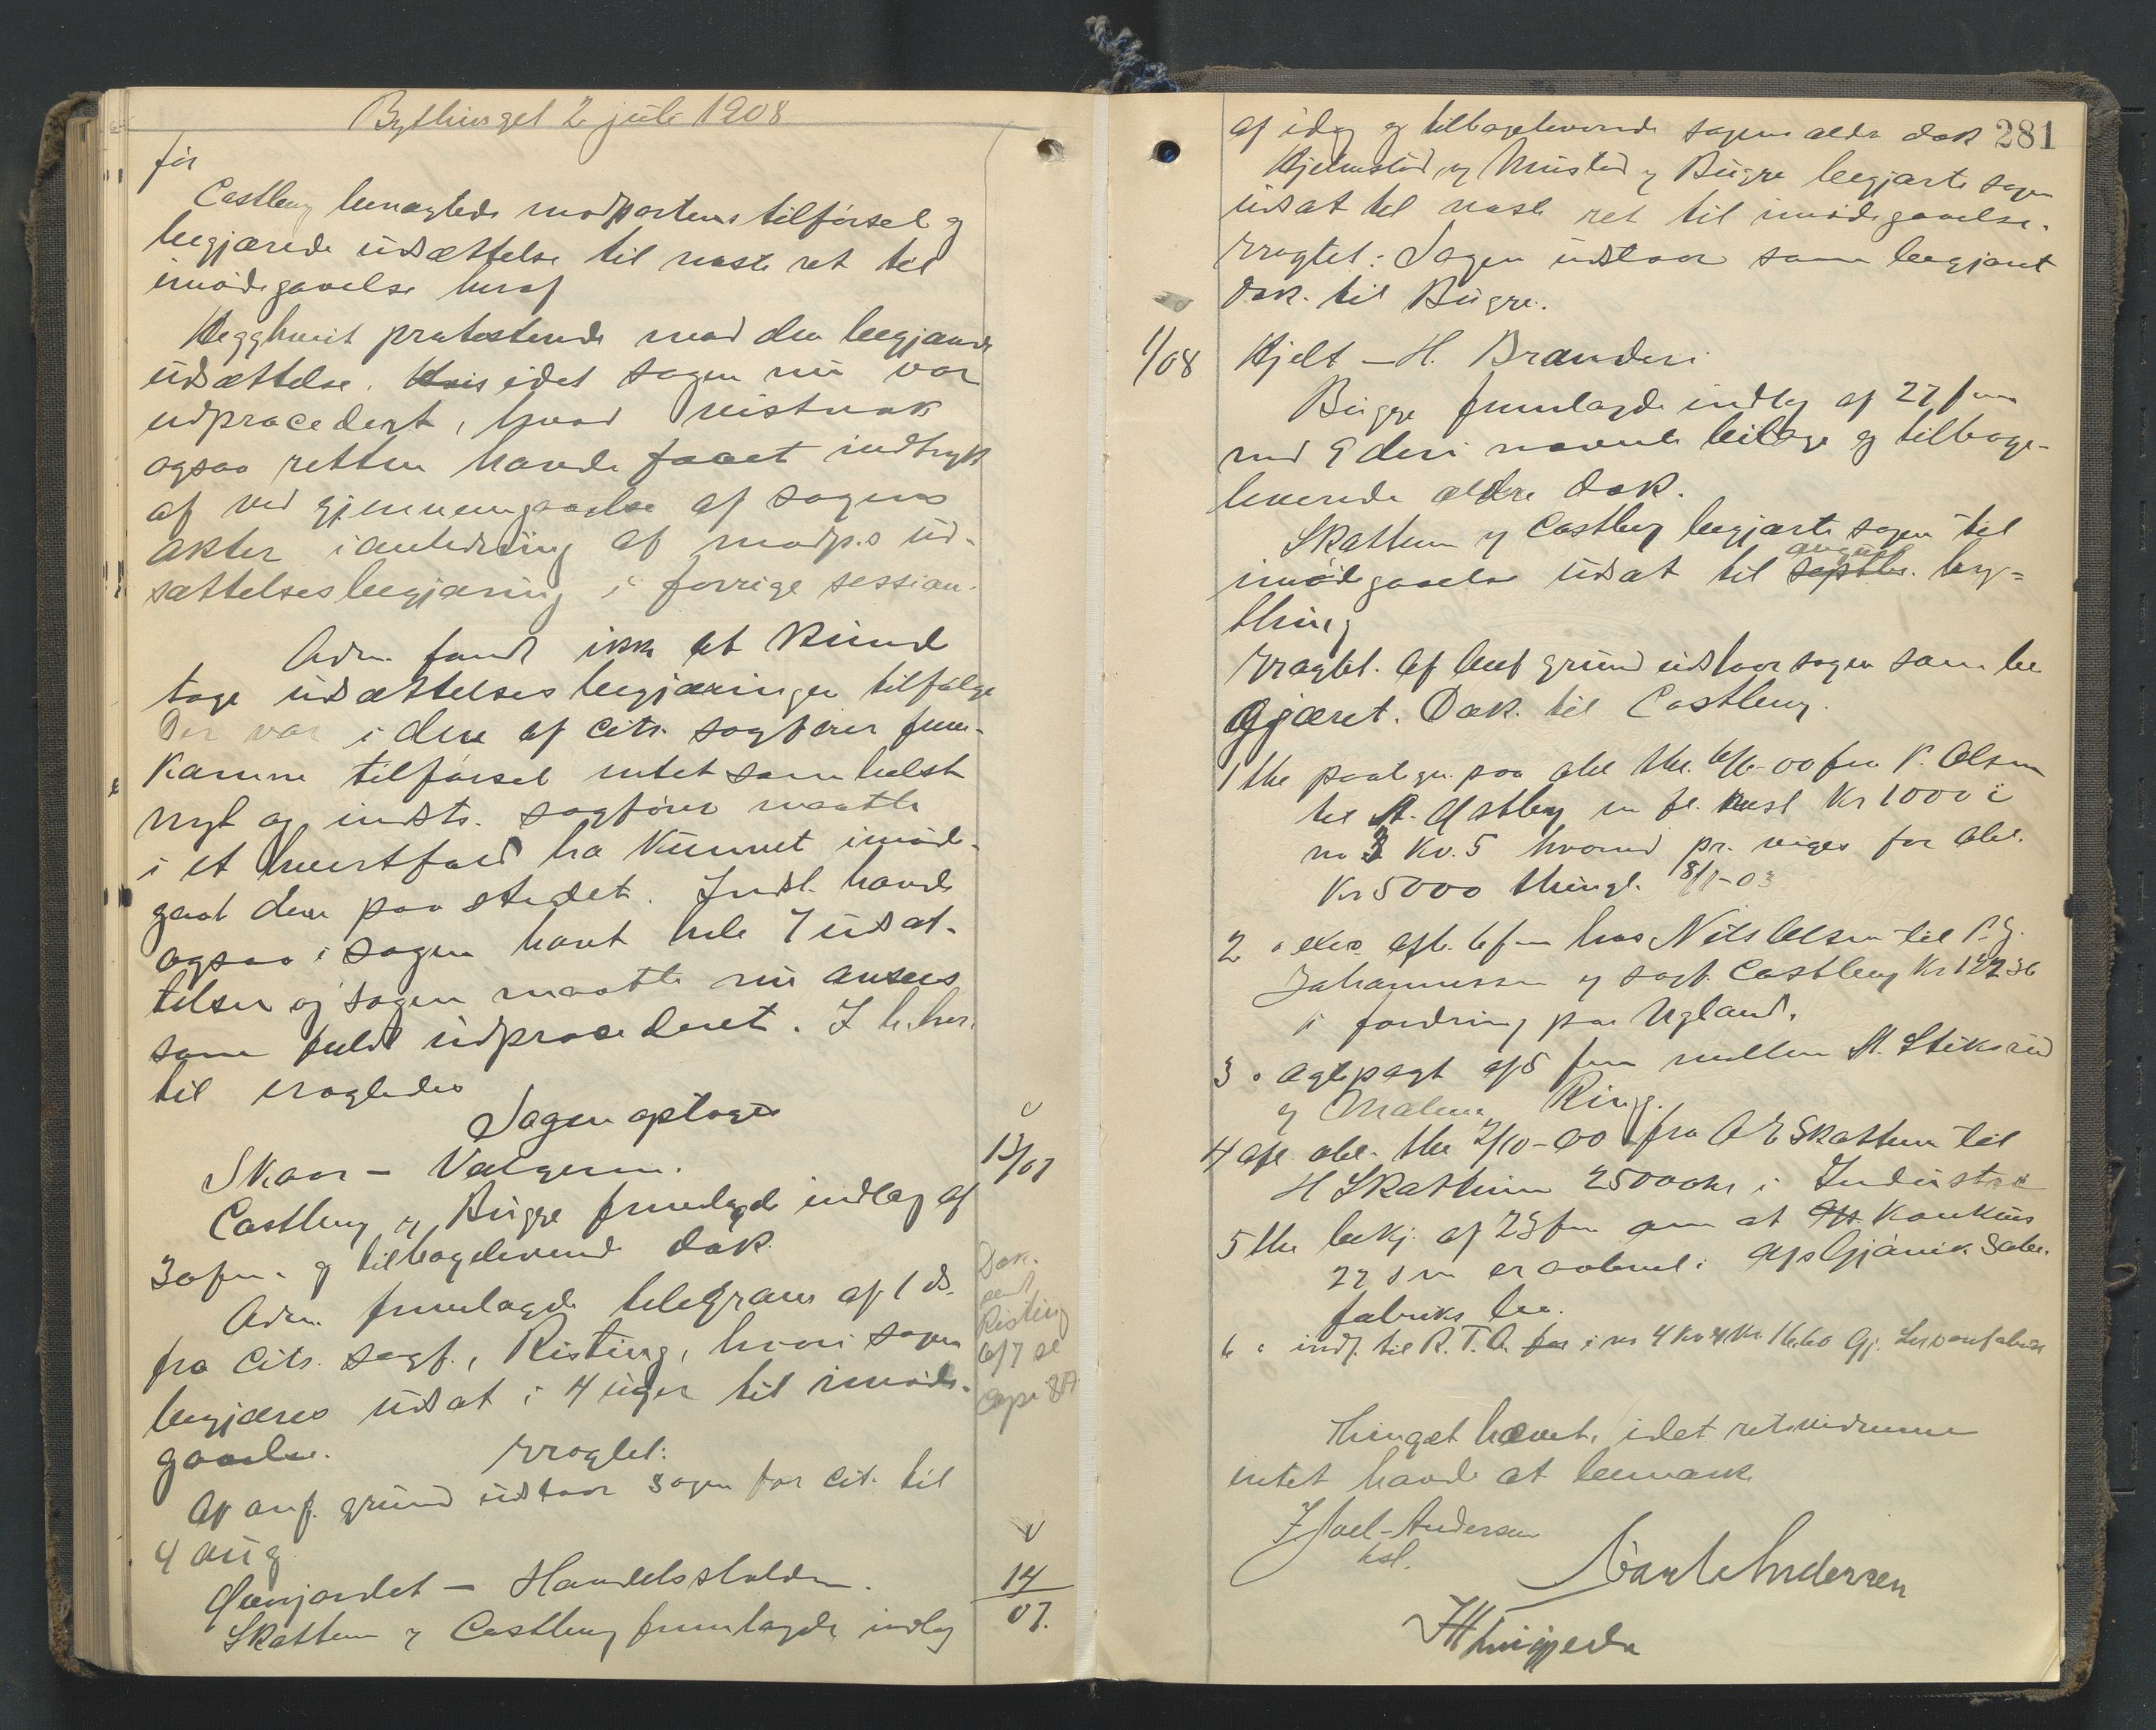 Bythinget 2 juli 1908
før
Castberg benægtede modpartens tilførsel og
begjærede udsættelse til næste ret til
imødegaaelse heraf
Hegghveit protesterede mod den begjærede
udsættelse. Hvis idet sagen nu var
udprocedert, hvad vistnok
ogsaa retten havde faaet indtryk
af ved gjennemgaaelse af sagens
akter i anledning af modp.s ud-
sættelsesbegjæring i forrige session.
Adm. fandt ikke at kunde
tage udsættelsesbegjæringen tilfølge
Der var i den af cits. sagfører frem-
komne tilførsel intet somhelst
nyt og indsts. sagfører maatte
i et hvertfald ha kunnet imøde-
gaat den paa stedet. Indst. havde
ogsaa i sagen havt hele 7 udsæt-
telser og sagen maatte nu ansees
som fuldt udprocederet. I h. her
til eragtedes
Sagen optages
Skaar - Valgerm.
13/07
Castberg og Bugge fremlagde indlæg af
30 fm. og tilbageleverede dok.
Adm. fremlagde telegram af 1 ds.
fra cits. sagf., Risting, hvori sagen
begjæres udsat i 4 uger til imøde-
gaaelse.
Eragtet:
Dok.
sendt
Risting
6/7 se
Copi 87
Af anf. grund udstaar sagen for cit. til
4 aug
Gaarjordet - Handelsstanden.
14/07.
Skattum og Castberg fremlagde indlæg
281
af idag og tilbageleverede sagens ældre dok
Hjelmstad og Mustad og Bugge begjærte sagen
udsat til næste ret til imødegaaelse.
Eragtet: Sagen udstaar som begjæret
Dok. til Bugge.
1/08
Hjelt - H. Brander
Bugge fremlagde indlæg af 27 fm
med 9 deri nævnte bilage og tilbage-
leverede ældre dok.
Skattum og Castberg begjærte sagen til
imødegaaelse udsat til septbr. august by-
thing
Eragtet. Af anf grund udstaar sagen som be
gjæret. Dok. til Castberg.
1 thl paategn. paa obl thl. 6/6-00 fra P. Olsen
til A. Østby
Kr 1000 i
no 3 Kv. 5 hvorved pr. viges for obl.
Kr 5000 thingl. 18/8-03
2 " exec. afh. 6 fm hos Nils Olsen til P. G.
Johannessen og sagf. Castberg Kr 122 36
i fordring paa Ugland.
3 " ægtepagt af 5 fm mellem A. Stiksrud
og Malene Ring.
4 afl. obl. thl 2/10-00 fra O E Skattum til
H Skattum 25000 kr i Industri
5 thl bekj. af 23 fm om at konkurs
27 s m er aabnet i A/S Gjøvik Sæbe-
fabriks bo.
6 " indf. til R. T. O. for i no 4 Kv 4 Kr 16.60 Gj.
Thinget hævet, idet retsvidnerne
intet havde at bemærke
I Joel-Andersen
kst.
Carl Andersen